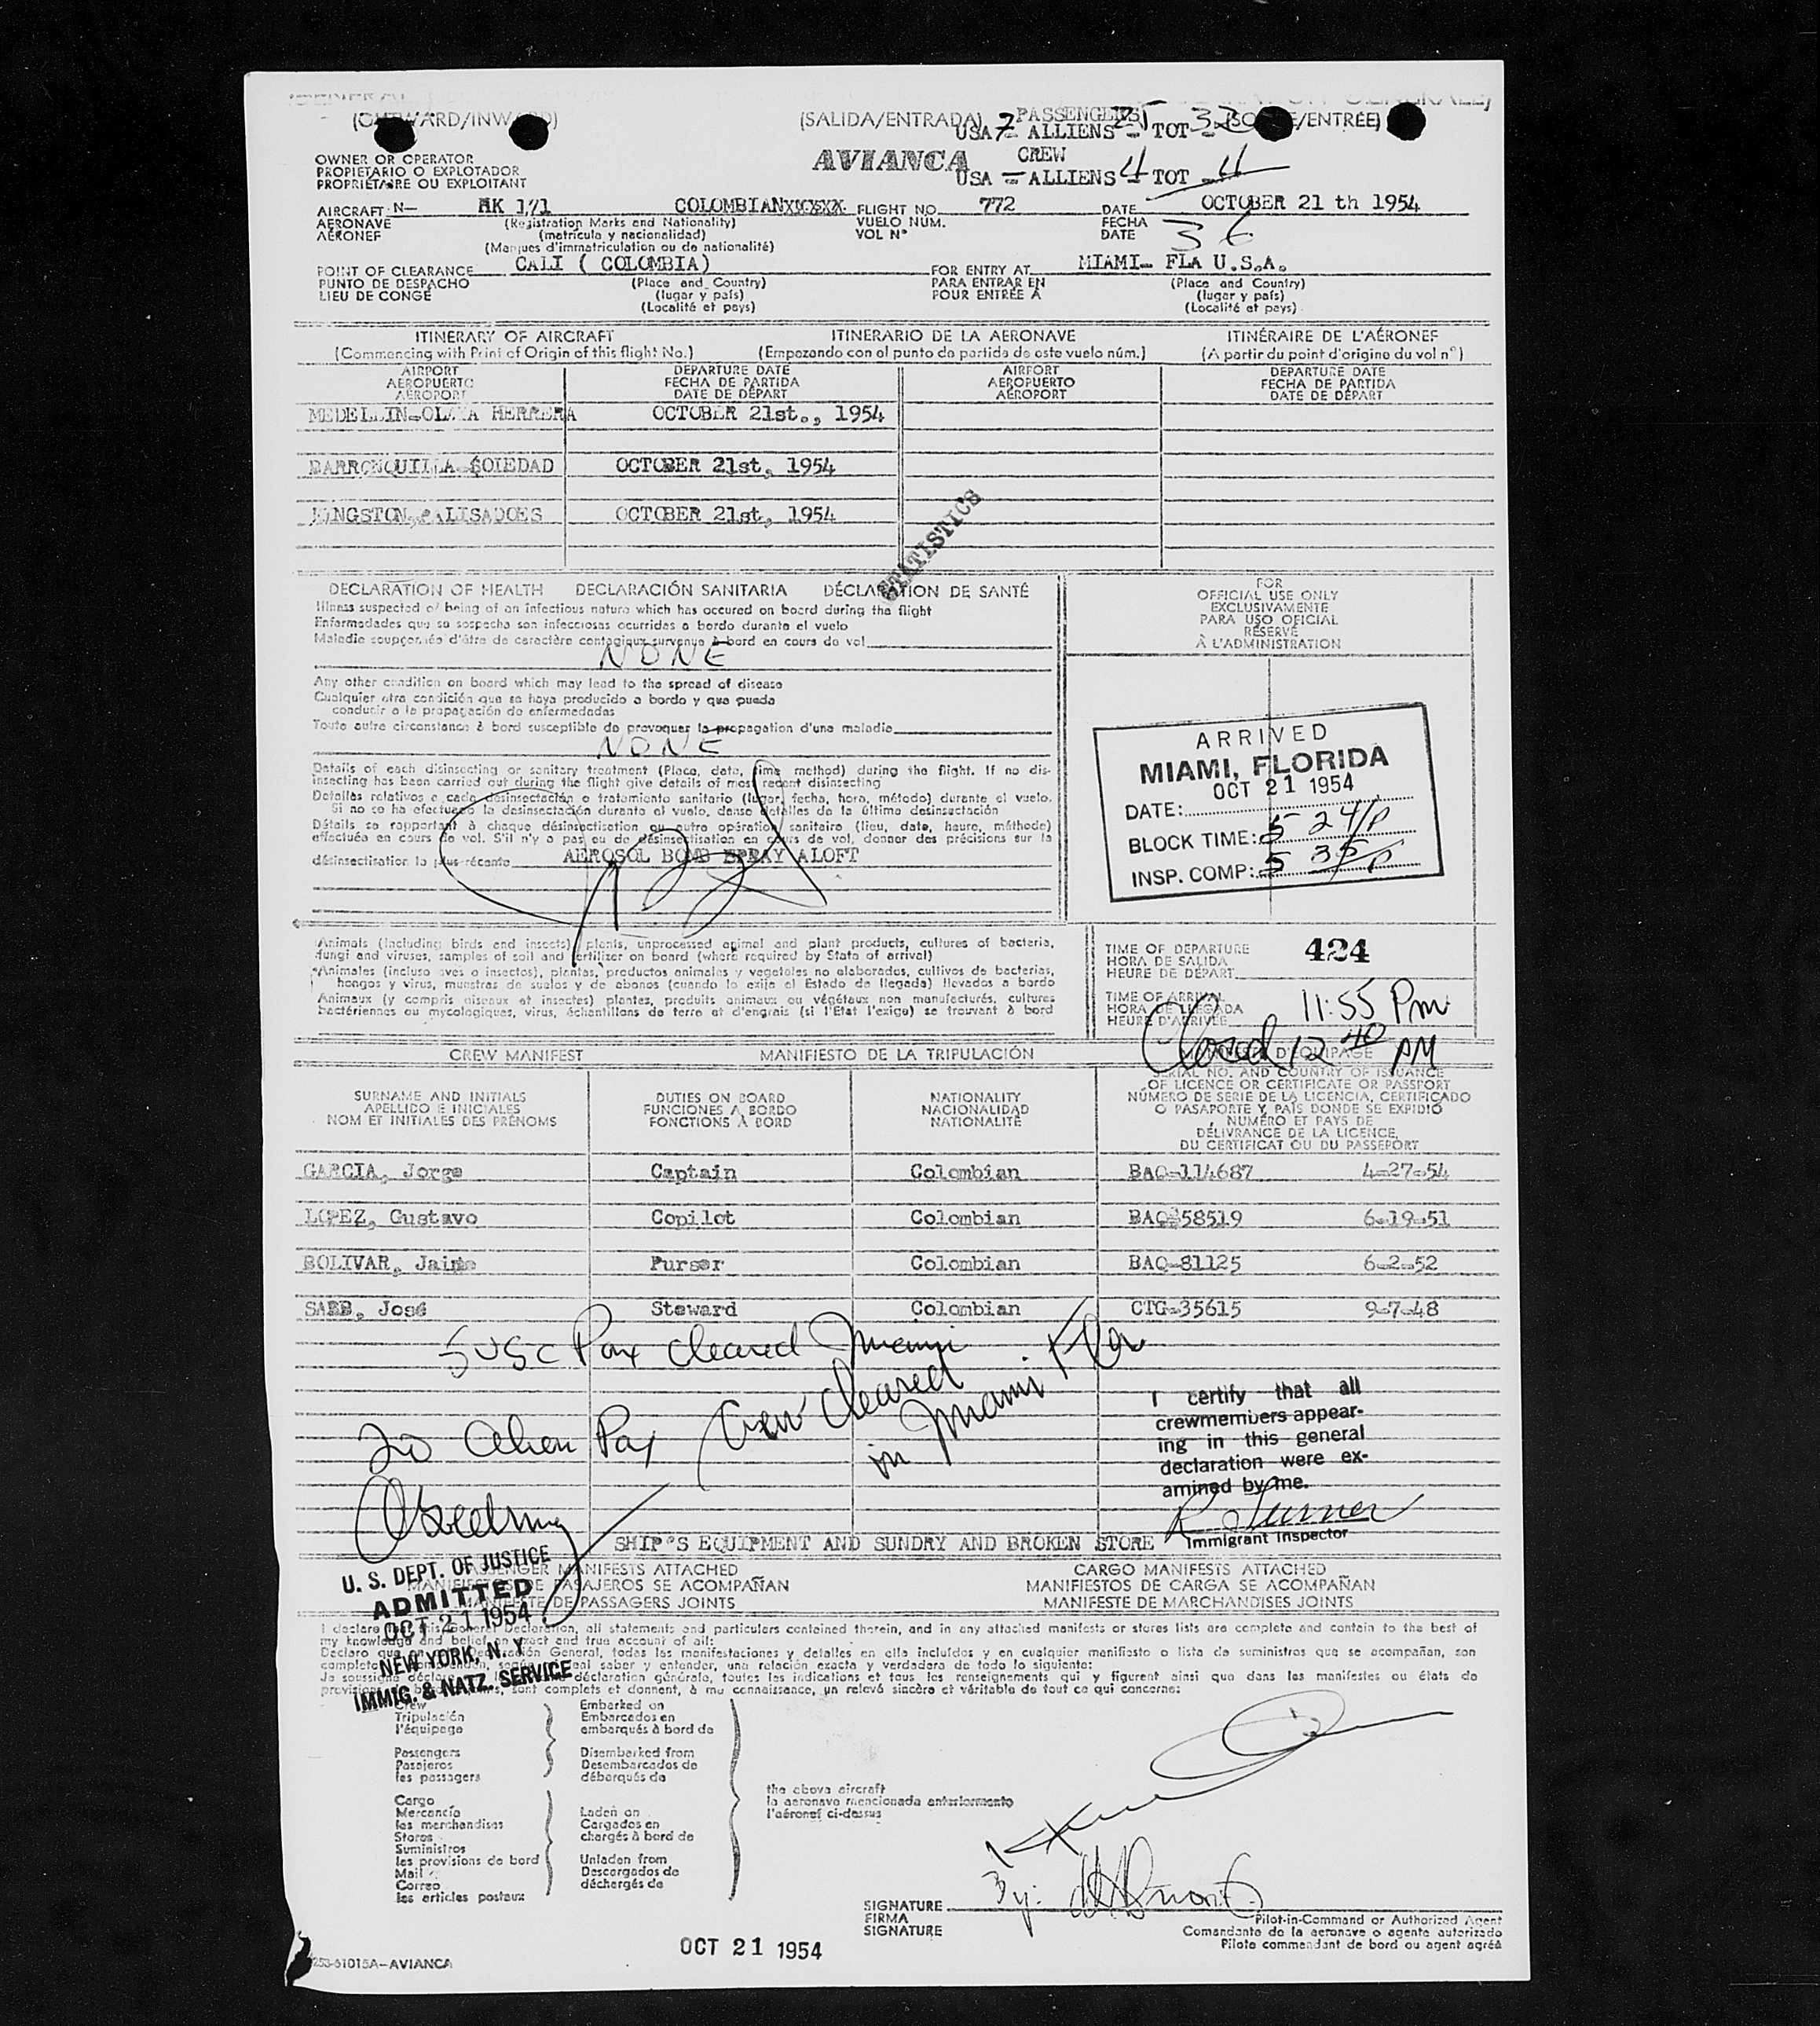 (SALIDA/ENTRADA)
PASSENGERS
USA 7 ALLIENS 25 TOT 32
OWNER OR OPERATOR
PROPIETARIO O EXPLOTADOR
PROPRIÉTAIRE OU EXPLOITANT
AVIANCA
CREW
USA — ALLIENS 4 TOT 4
AIRCRAFT N— HK 171 COLOMBIANXXXXXX FLIGHT NO. 772 DATE OCTOBER 21 th 1954
AERONAVE (Registration Marks and Nationality) VUELO NUM. FECHA
AÉRONEF (matrícula y nacionalidad) VOL N° DATE 36
(Marques d'immatriculation ou de nationalité)
POINT OF CLEARANCE CALI ( COLOMBIA) FOR ENTRY AT MIAMI- FLA U.S.A.
PUNTO DE DESPACHO (Place and Country) PARA ENTRAR EN (Place and Country)
LIEU DE CONGÉ (lugar y país) POUR ENTRÉE À (lugar y país)
(Localité et pays) (Localité et pays)
ITINERARY OF AIRCRAFT ITINERARIO DE LA AERONAVE ITINÉRAIRE DE L'AÉRONEF
(Commencing with Print of Origin of this flight No.) (Empezando con el punto de partida de este vuelo núm.) (A partir du point d'origine du vol n°)
AIRPORT DEPARTURE DATE AIRPORT DEPARTURE DATE
AEROPUERTO FECHA DE PARTIDA AEROPUERTO FECHA DE PARTIDA
AÉROPORT DATE DE DÉPART AÉROPORT DATE DE DÉPART
MEDELLIN-OLAYA HERRERA OCTOBER 21st., 1954
BARRONQUILLA SOIEDAD OCTOBER 21st, 1954
KINGSTON PALISADOES OCTOBER 21st, 1954
STATISTICS
DECLARATION OF HEALTH DECLARACIÓN SANITARIA DÉCLARATION DE SANTÉ
Illness suspected of being of an infectious nature which has occured on board during the flight
Enfermedades que se sospecha son infecciosas ocurridas a bordo durante el vuelo
Maladie soupçonnée d'être de caractère contagieux survenue à bord en cours de vol
NONE
Any other condition on board which may lead to the spread of disease
Cualquier otra condición que se haya producido a bordo y que pueda
conducir a la propagación de enfermedades
Toute autre circonstance à bord susceptible de provoquer la propagation d'une maladie
NONE
Details of each disinsecting or sanitary treatment (Place, date, time, method) during the flight. If no dis-
insecting has been carried out during the flight give details of most recent disinsecting
Detalles relativos a cada desinsectación o tratamiento sanitario (lugar, fecha, hora, método) durante el vuelo.
Si no se ha efectuado la desinsectación durante el vuelo, dense detalles de la última desinsectación
Détails se rapportant à chaque désinsectisation ou autre opération sanitaire (lieu, date, heure, méthode)
effectuée en cours de vol. S'il n'y a pas eu de désinsectisation en cours de vol, donner des précisions sur la
désinsectisation la plus récente AEROSOL BOMB SPRAY ALOFT
FOR
OFFICIAL USE ONLY
EXCLUSIVAMENTE
PARA USO OFICIAL
RÉSERVÉ
À L'ADMINISTRATION
ARRIVED
MIAMI, FLORIDA
OCT 21 1954
DATE:
BLOCK TIME: 5 24/P
INSP. COMP: 5 35/P
Animals (including birds and insects) plants, unprocessed animal and plant products, cultures of bacteria,
fungi and viruses, samples of soil and fertilizer on board (where required by State of arrival)
Animales (incluso aves o insectos), plantas, productos animales y vegetales no elaborados, cultivos de bacterias,
hongos y virus, muestras de suelos y de abonos (cuando lo exija el Estado de llegada) llevados a bordo
Animaux (y compris oiseaux et insectes) plantes, produits animaux ou végétaux non manufacturés, cultures
bactériennes ou mycologiques, virus, échantillons de terre et d'engrais (si l'État l'exige) se trouvant à bord
TIME OF DEPARTURE
HORA DE SALIDA 424
HEURE DE DÉPART
TIME OF ARRIVAL
HORA DE LLEGADA 11:55 Pm
HEURE D'ARRIVÉE
Closed 12 40 PM
CREW MANIFEST MANIFIESTO DE LA TRIPULACIÓN D'EQUIPAGE
SURNAME AND INITIALS DUTIES ON BOARD NATIONALITY SERIAL NO. AND COUNTRY OF ISSUANCE
APELLIDO E INICIALES FUNCIONES A BORDO NACIONALIDAD OF LICENCE OR CERTIFICATE OR PASSPORT
NOM ET INITIALES DES PRÉNOMS FONCTIONS À BORD NATIONALITÉ NÚMERO DE SERIE DE LA LICENCIA, CERTIFICADO
O PASAPORTE Y PAÍS DONDE SE EXPIDIÓ
NUMÉRO ET PAYS DE
DÉLIVRANCE DE LA LICENCE,
DU CERTIFICAT OU DU PASSEPORT
GARCIA, Jorge Captain Colombian BAQ-114687 4-27-54
LOPEZ, Gustavo Copilot Colombian BAQ-58519 6-19-51
BOLIVAR, Jaime Purser Colombian BAQ-81125 6-2-52
SABB, José Steward Colombian CTG-35615 9-7-48
5 USC Pax cleared Miami Fla
20 Alien Pax Crew cleared
in Miami
I certify that all
crewmembers appear-
ing in this general
declaration were ex-
amined by me.
R Turner
Immigrant Inspector
SHIP'S EQUIPMENT AND SUNDRY AND BROKEN STORE
PASSENGER MANIFESTS ATTACHED CARGO MANIFESTS ATTACHED
MANIFIESTOS DE PASAJEROS SE ACOMPAÑAN MANIFIESTOS DE CARGA SE ACOMPAÑAN
MANIFESTE DE PASSAGERS JOINTS MANIFESTE DE MARCHANDISES JOINTS
U. S. DEPT. OF JUSTICE
ADMITTED
OCT 21 1954
NEW YORK, N. Y.
IMMIG. & NATZ. SERVICE
I declare that this General Declaration, all statements and particulars contained therein, and in any attached manifests or stores lists are complete and contain to the best of
my knowledge and belief an exact and true account of all:
Declaro que General, todas las manifestaciones y detalles en ella incluídos y en cualquier manifiesto o lista de suministros que se acompañan, son
saber y entender, una relación exacta y verdadera de todo lo siguiente:
Je soussigné déclaration générale, toutes les indications et tous les renseignements qui y figurent ainsi que dans les manifestes ou états de
provisions sont complets et donnent, à ma connaissance, un relevé sincère et véritable de tout ce qui concerne:
Crew Embarked on
Tripulación Embarcados en
l'équipage embarqués à bord de
Passengers Disembarked from
Pasajeros Desembarcados de
les passagers débarqués de
the above aircraft
la aeronave mencionada anteriormente
l'aéronef ci-dessus
Cargo
Mercancía Laden on
les merchandises Cargados en
Stores chargés à bord de
Suministros
les provisions de bord Unladen from
Mail Descargados de
Correo déchargés de
les articles postaux
By:
SIGNATURE
FIRMA
SIGNATURE
Pilot-in-Command or Authorized Agent
Comandante de la aeronave o agente autorizado
Pilote commandant de bord ou agent agréé
OCT 21 1954
253-61015A-AVIANCA